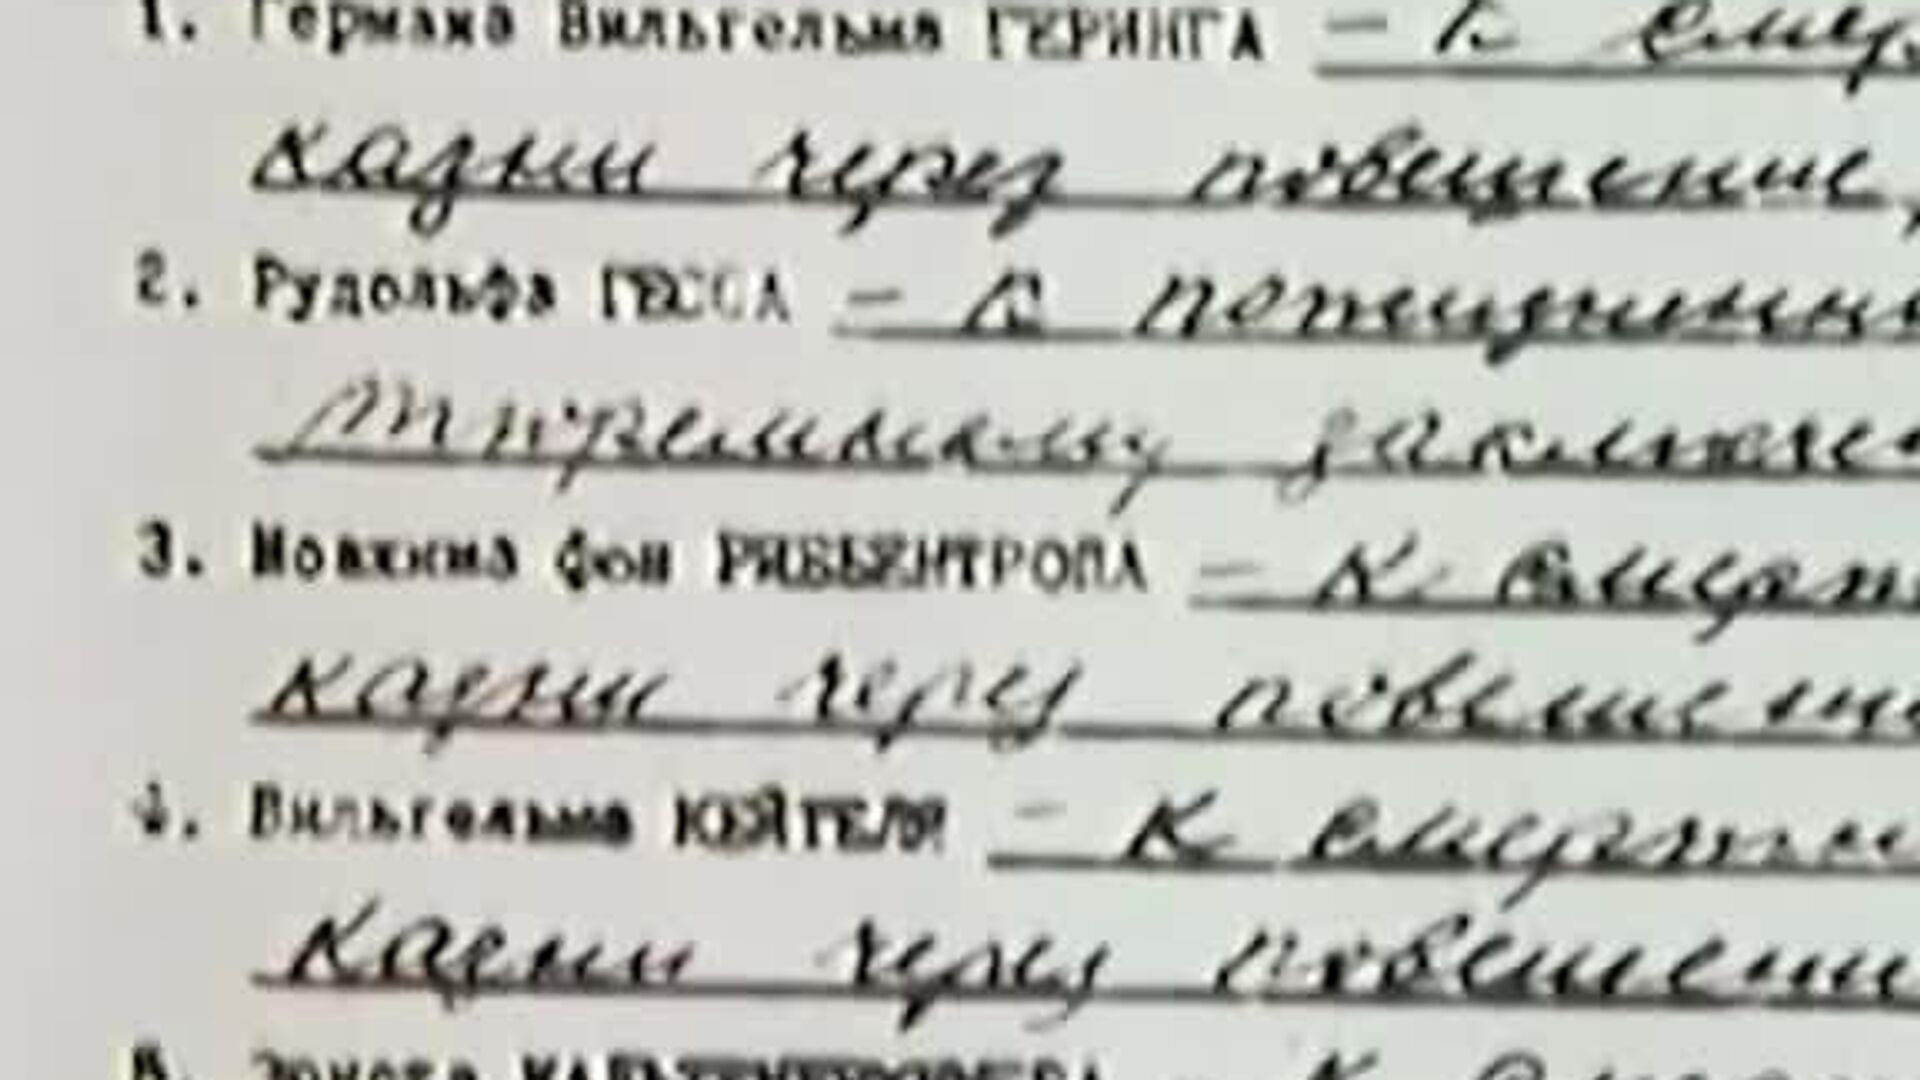 1. Германа Вильгельма ГЕРИНГА – к
казни через повешение,
2. Рудольфа ГЕССА – к пожизненн
тюремному заключе
3. Иоахима фон РИББЕНТРОПА – к смерт
казни через повешени
4. Вильгельма КЕЙТЕЛЯ – к смертн
казни через повешени
5. Эрнста КАЛЬТЕНБРУННЕРА – к